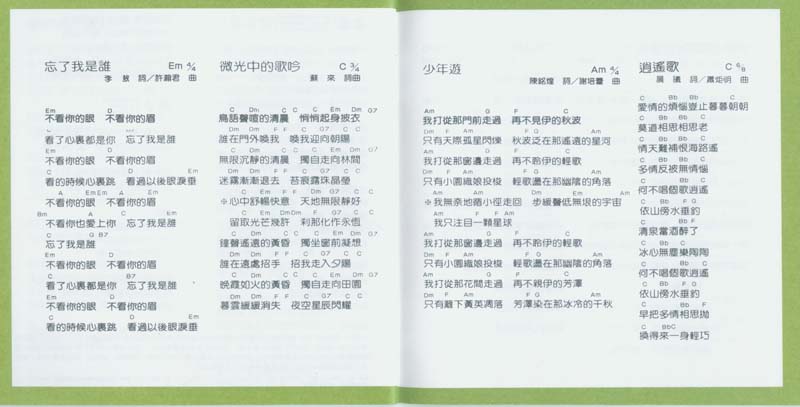 忘了我是誰
Em 4/4
李敖 詞／許瀚君 曲
Em D
不看你的眼 不看你的眉
C Em
看了心裏都是你 忘了我是誰
Em D
不看你的眼 不看你的眉
C Em
看的時候心裏跳 看過以後眼淚垂
A Em A Em Em A
不看你的眼 不看你的眉
Bm A C Em
不看你也愛上你 忘了我是誰
C G B7
忘了我是誰
Em D
不看你的眼 不看你的眉
C Em
看了心裏都是你 忘了我是誰
Em D
不看你的眼 不看你的眉
C Em
看的時候心裏跳 看過以後眼淚垂
微光中的歌吟
C 3/4
蘇來 詞曲
C Dm C C C Em Dm G7
鳥語聲喧的清晨 悄悄起身披衣
C Dm Dm F F C G7 C C
誰在門外喚我 喚我迎向朝陽
C Dm C C C Em Dm G7
無限沉靜的清晨 獨自走向林間
C Dm Dm F F C G7 C C
迷霧漸漸退去 苔痕露珠晶瑩
※心中舒暢快意 天地無限靜好
留取光芒幾許 剎那化作永恆
鐘聲遙遠的黃昏 獨坐窗前凝想
誰在遠處招手 招我走入夕陽
晚霞如火的黃昏 獨自走向田園
暮雲緩緩消失 夜空星辰閃耀
少年遊
Am 4/4
陳銘煌 詞／謝培蕾 曲
Am G F C
我打從那門前走過 再不見伊的秋波
Dm F Am C F G Am
只有天際孤星閃爍 秋波泛在那遙遠的星河
Am G F C
我打從那窗邊走過 再不聆伊的輕歌
Dm F Am C F G Am
只有小園織娘投梭 輕歌盪在那幽陰的角落
※我無奈地循小徑走回 步緩聲低無垠的宇宙
我只注目一顆星球
Am G F C
我打從那窗邊走過 再不聆伊的輕歌
Dm F Am C F G Am
只有小園織娘投梭 輕歌盪在那幽陰的角落
Am G F C
我打從那花間走過 再不親伊的芳澤
Dm F Am C F G Am
只有籬下黃英凋落 芳澤染在那冰冷的千秋
逍遙歌
C 6/8
晨曦 詞／蕭炬明 曲
愛情的煩惱豈止暮暮朝朝
莫道相思相思老
情天難補恨海路遙
多情反被無情惱
何不唱個歌逍遙
依山傍水垂釣
清泉當酒醉了
冰心無塵樂陶陶
何不唱個歌逍遙
依山傍水垂釣
早把多情相思拋
換得來一身輕巧